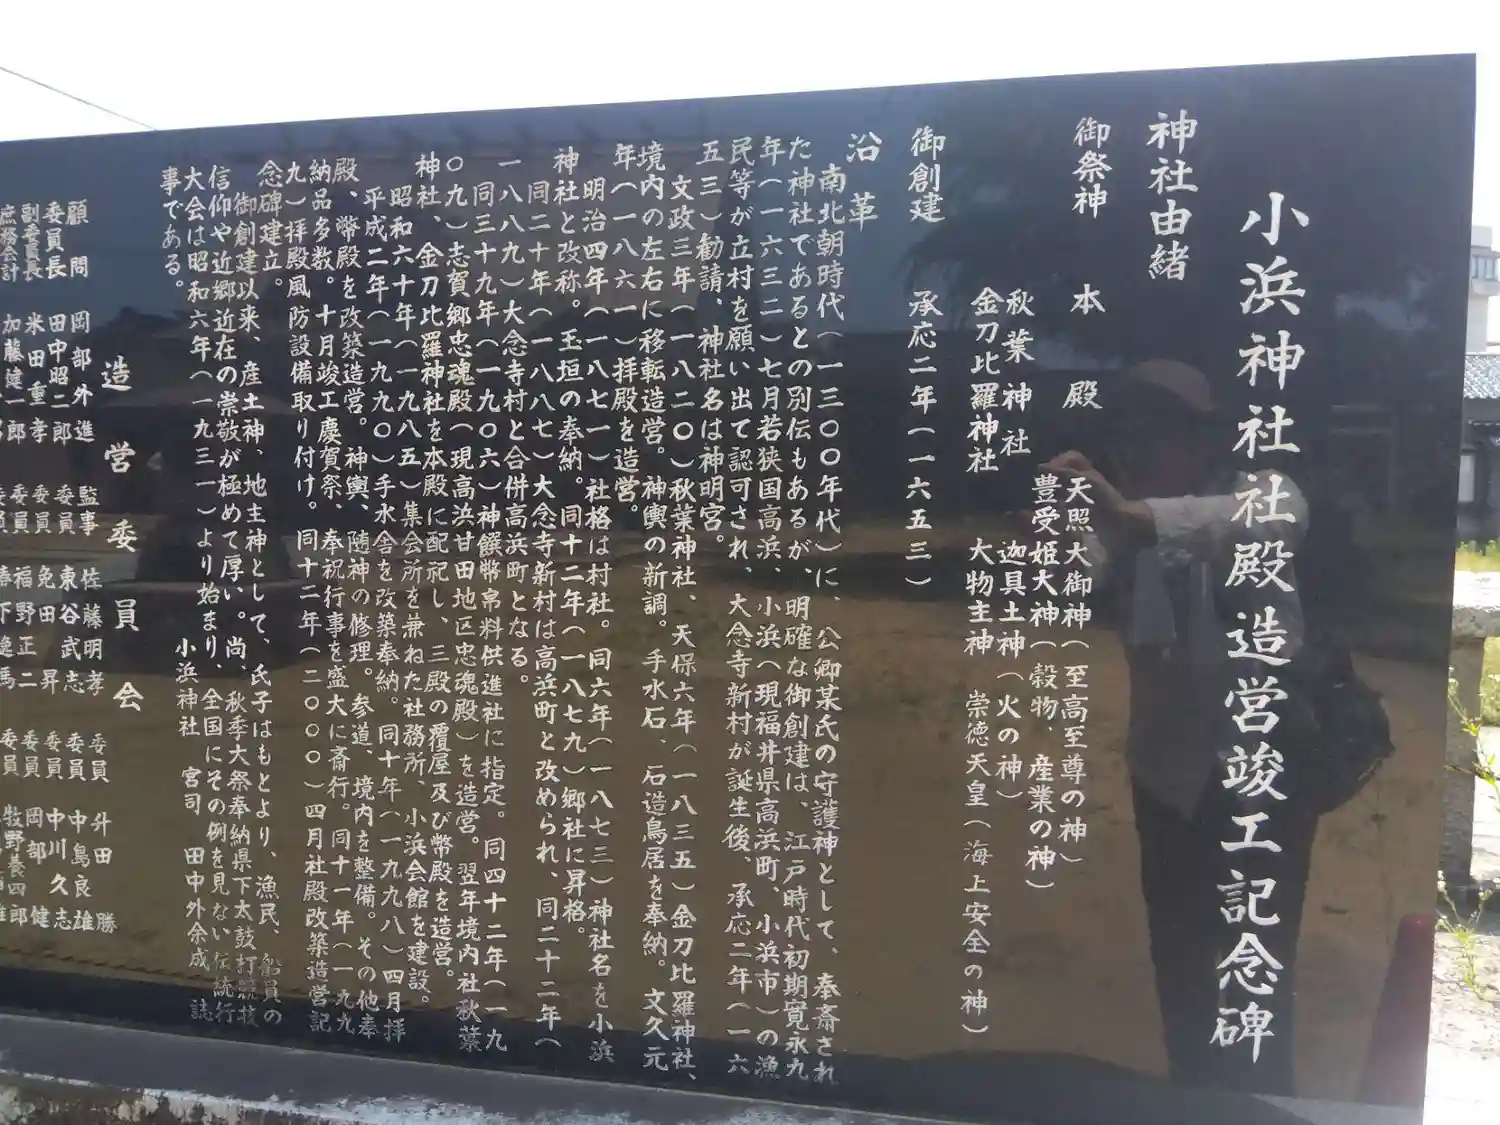 小浜神社社殿造営竣工記念碑
神社由緒
御祭神 本殿 天照大御神(至高至尊の神)
豊受姫大神(穀物、産業の神)
秋葉神社 迦具土神(火の神)
金刀比羅神社 大物主神 崇徳天皇(海上安全の神)
御創建 承応二年(一六五三)
沿革
南北朝時代(一三〇〇年代)に、公卿某氏の守護神として、奉斎され
た神社であるとの別伝もあるが、明確な御創建は、江戸時代初期寛永九
年(一六三二)七月若狭国高浜、小浜(現福井県高浜町、小浜市)の漁
民等が立村を願い出て認可され、大念寺新村が誕生後、承応二年(一六
五三)勧請、神社名は神明宮。
文政三年(一八二〇)秋葉神社、天保六年(一八三五)金刀比羅神社、
境内の左右に移転造営。神輿の新調。手水石、石造鳥居を奉納。文久元
年(一八六一)拝殿を造営。
明治四年(一八七一)社格は村社。同六年(一八七三)神社名を小浜
神社と改称。玉垣の奉納。同十二年(一八七九)郷社に昇格。
同二十年(一八八七)大念寺新村は高浜町と改められ、同二十二年(
一八八九)大念寺村と合併高浜町となる。
同三十九年(一九〇六)神饌幣帛料供進社に指定。同四十二年(一九
〇九)志賀郷忠魂殿(現高浜甘田地区忠魂殿)を造営。翌年境内社秋葉
神社、金刀比羅神社を本殿に配祀し、三殿の覆屋及び幣殿を造営。
昭和六十年(一九八五)集会所を兼ねた社務所、小浜会館を建設。
平成二年(一九九〇)手水舎を改築奉納。同十年(一九九八)四月拝
殿、幣殿を改築造営。神輿、随神の修理。参道、境内を整備。その他奉
納品多数。十月竣工慶賀祭、奉祝行事を盛大に斎行。同十一年(一九九
九)拝殿風防設備取り付け。同十二年(二〇〇〇)四月社殿改築造営記
念碑建立。
御創建以来、産土神、地主神として、氏子はもとより、漁民、船員の
信仰や近郷近在の崇敬が極めて厚い。尚、秋季大祭奉納県下太鼓打競技
大会は昭和六年(一九三一)より始まり、全国にその例を見ない伝統行
事である。
小浜神社 宮司 田中外余成 誌
造営委員会
顧問 岡部外進 監事 佐藤明孝 委員 升田勝
委員長 田中昭二郎 委員 東谷武志 委員 中島良雄
副委員長 米田重孝 委員 免田昇 委員 中川久志
庶務会計 加藤健一郎 委員 福野正二 委員 岡部健
委員 委員 牧野養四郎